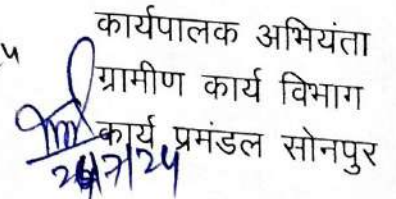 कार्यपालक अभियंता
ग्रामीण कार्य विभाग
कार्य प्रमंडल सोनपुर